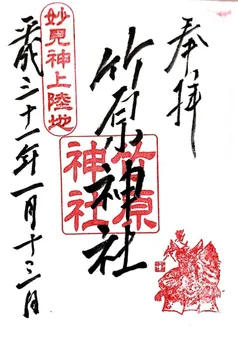 奉拝
竹原神社
竹原神社
妙見神上陸地
平成三十一年一月十三日